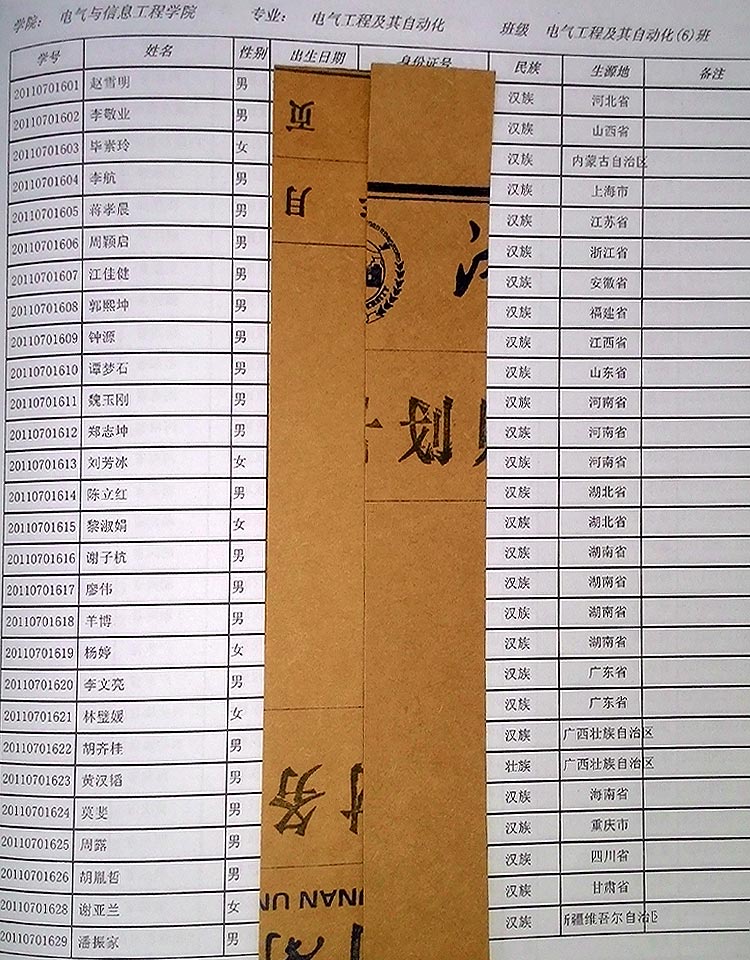 学院: 电气与信息工程学院 专业: 电气工程及其自动化 班级 电气工程及其自动化(6)班
学号 姓名 性别 出生日期 身份证号 民族 生源地 备注
20110701601 赵雪明 男 汉族 河北省
20110701602 李敬业 男 汉族 山西省
20110701603 毕崇玲 女 汉族 内蒙古自治区
20110701604 李航 男 汉族 上海市
20110701605 蒋孝晨 男 汉族 江苏省
20110701606 周颖启 男 汉族 浙江省
20110701607 江佳健 男 汉族 安徽省
20110701608 郭熙坤 男 汉族 福建省
20110701609 钟源 男 汉族 江西省
20110701610 谭梦石 男 汉族 山东省
20110701611 魏玉刚 男 汉族 河南省
20110701612 郑志坤 男 汉族 河南省
20110701613 刘芳冰 女 汉族 河南省
20110701614 陈立红 男 汉族 湖北省
20110701615 黎淑娟 女 汉族 湖北省
20110701616 谢子杭 男 汉族 湖南省
20110701617 廖伟 男 汉族 湖南省
20110701618 羊博 男 汉族 湖南省
20110701619 杨婷 女 汉族 湖南省
20110701620 李文亮 男 汉族 广东省
20110701621 林璧媛 女 汉族 广东省
20110701622 胡齐桂 男 汉族 广西壮族自治区
20110701623 黄汉韬 男 壮族 广西壮族自治区
20110701624 莫斐 男 汉族 海南省
20110701625 周露 男 汉族 重庆市
20110701626 胡胤哲 男 汉族 四川省
20110701628 谢亚兰 女 汉族 甘肃省
20110701629 潘振家 男 汉族 新疆维吾尔自治区
页
月
务
UNAN UN